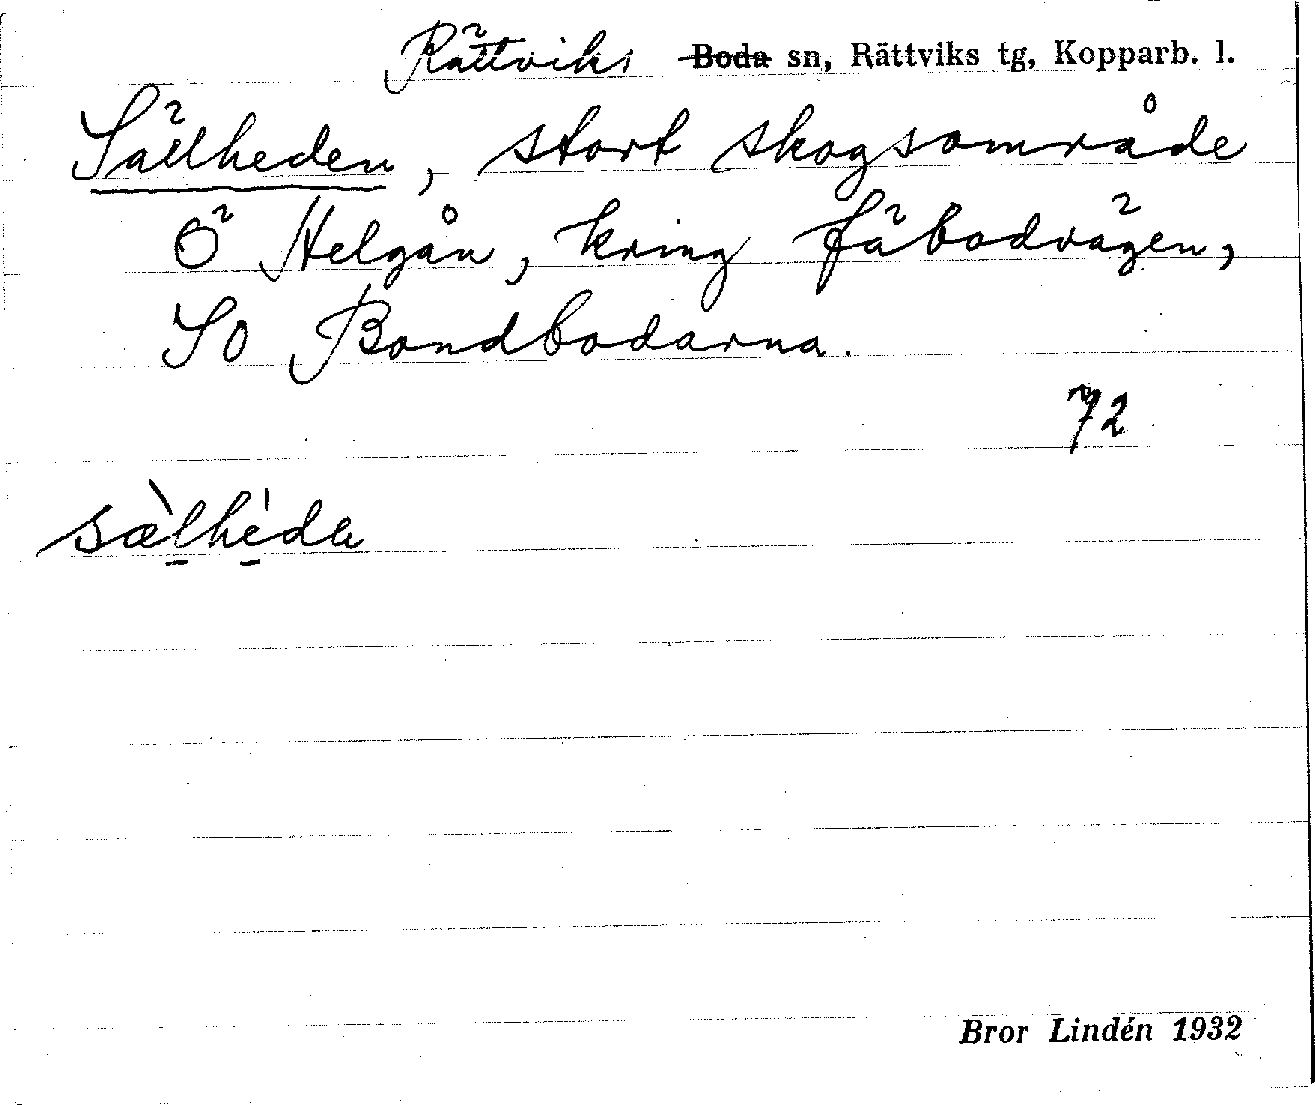 Rättviks Boda sn, Rättviks tg, Kopparb. l.
Sällheden, stort skogsområde
Ö Helgån, kring fäbodvägen,
SO Bondbodarna.
72
sæ̀lhéda
Bror Lindén 1932